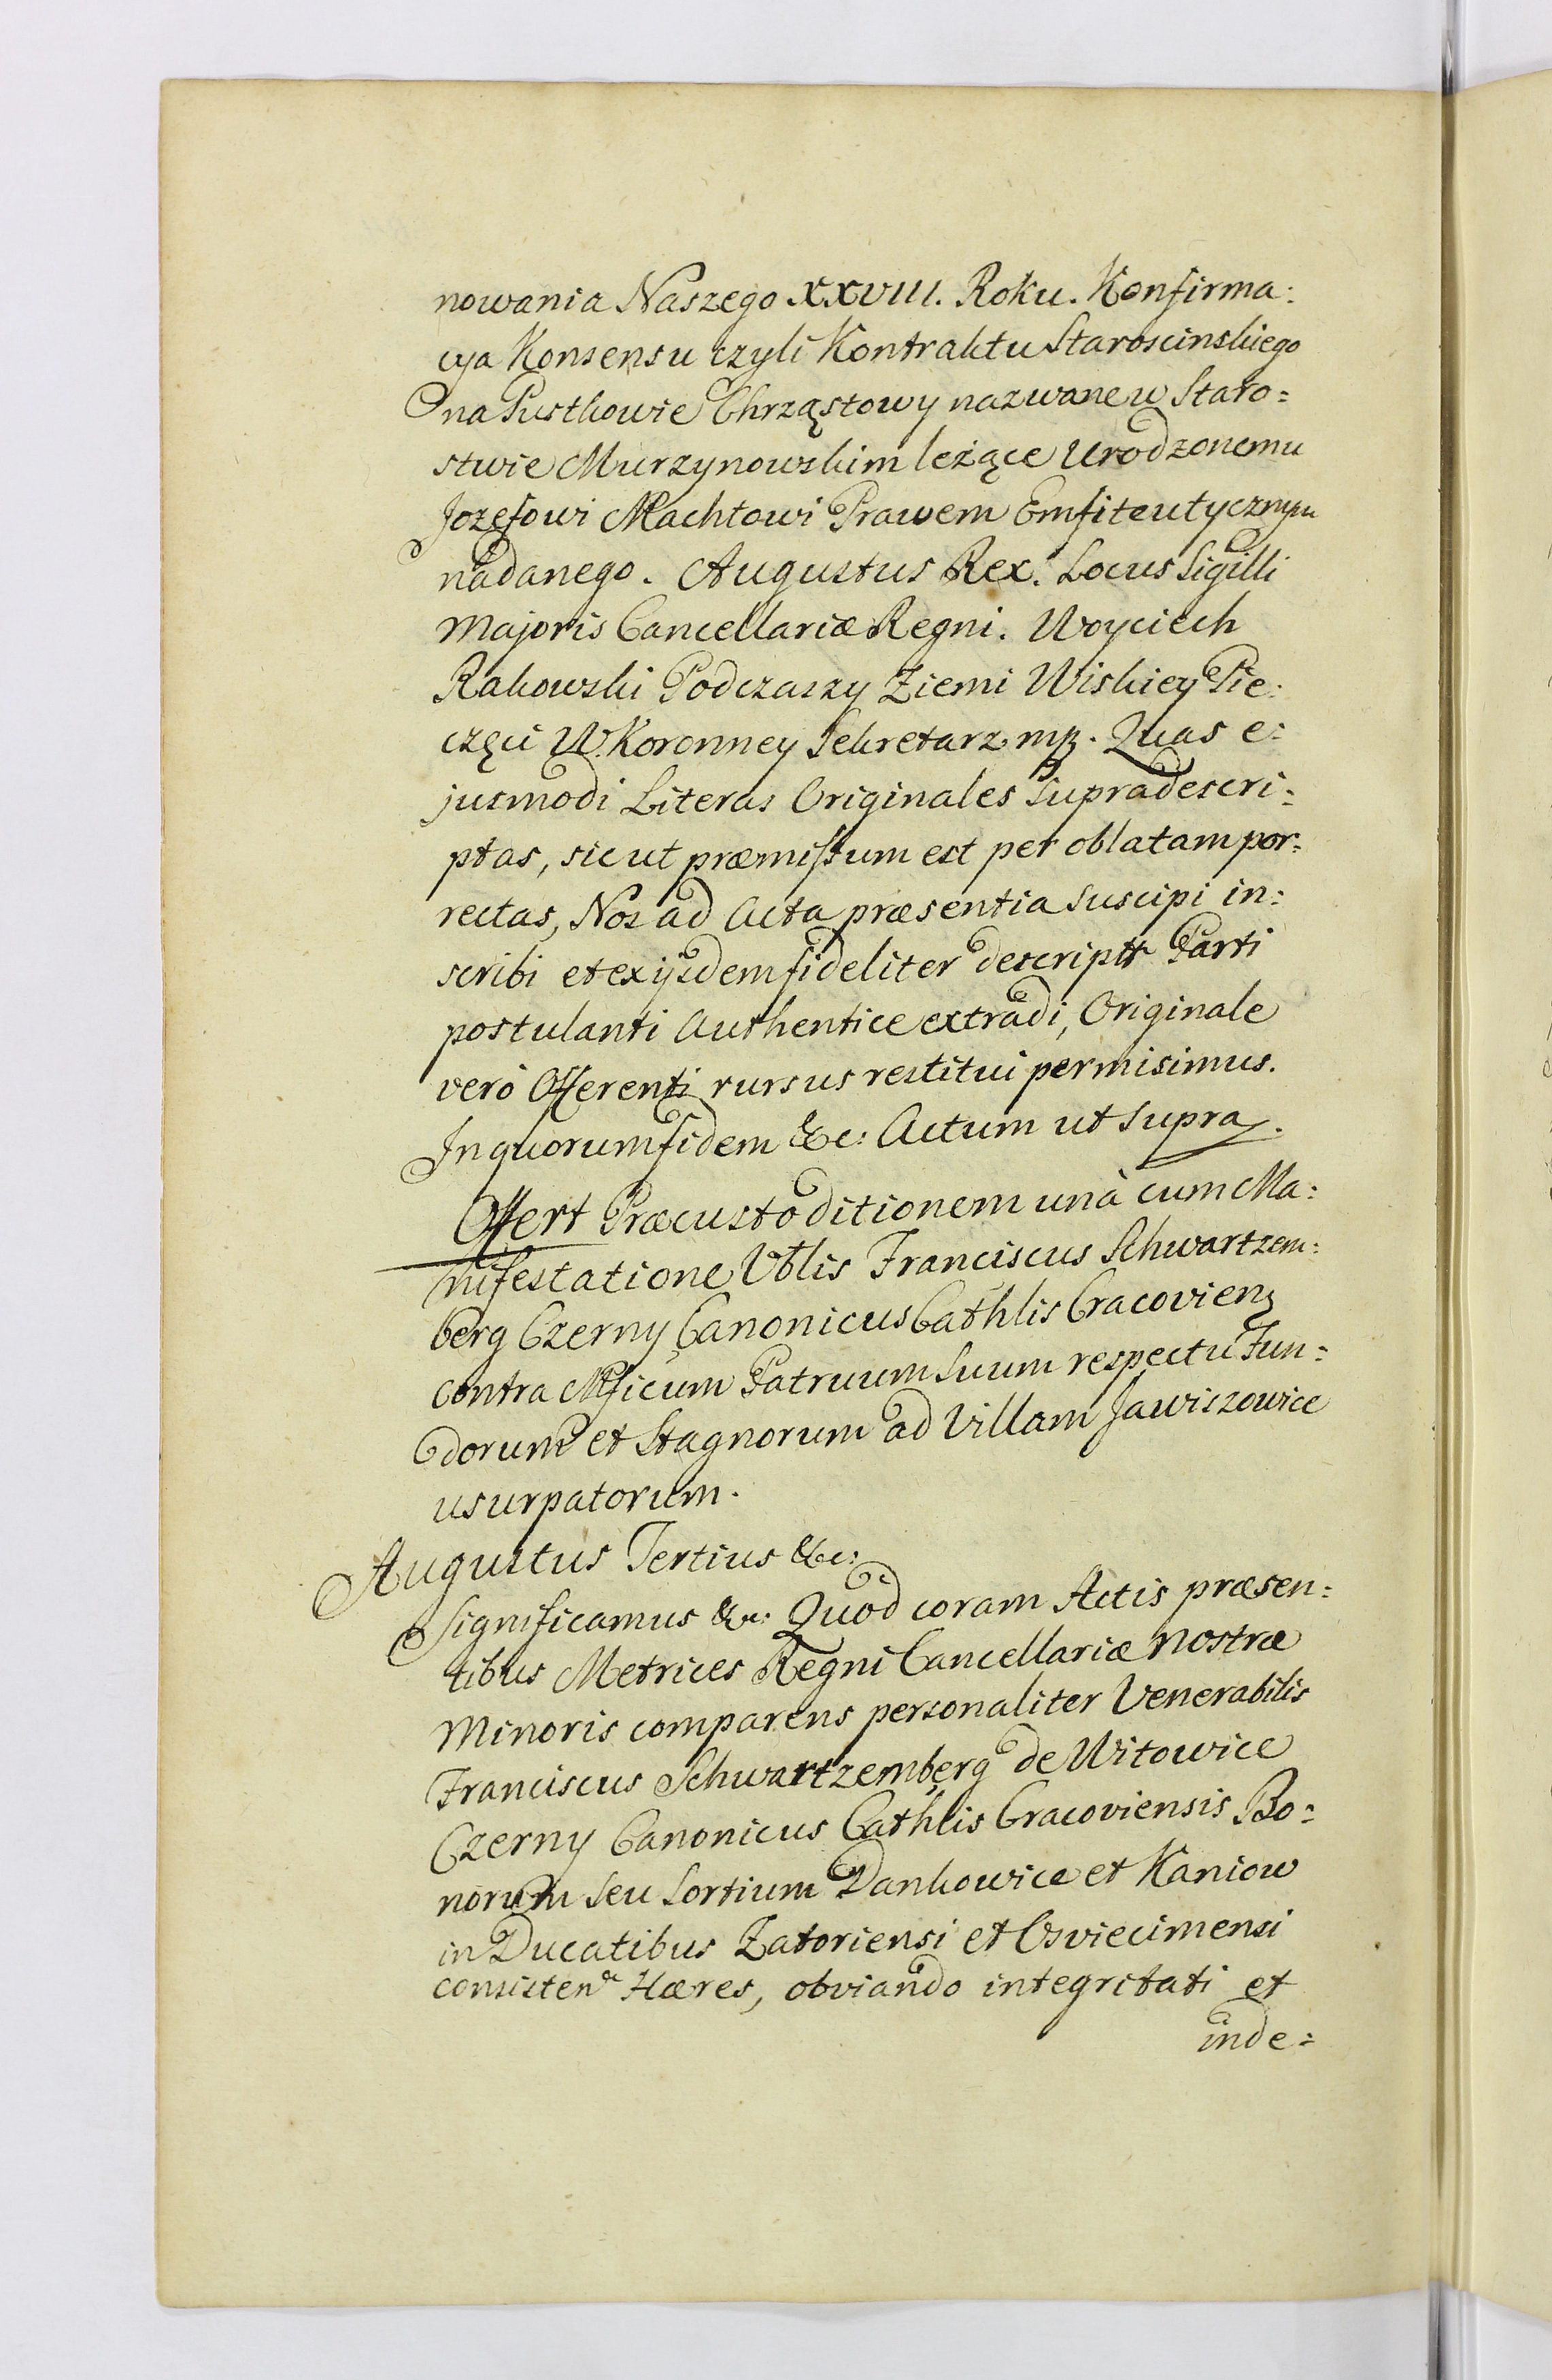 nowania Naszego XXVIII. Roku. Konfirma:
cya Konsensu czyli Kontraktu Staroscinskiego
na Pustkowie Chrząstowy nazwane w Staro=
stwie Murzynowskim leżące Urodzonemu
Jozefowi Machtowi Prawem Emfiteutycznym
nadanego. Augustus Rex. Locus Sigilli
Majoris Cancellariæ Regni. Woyciech
Rakowski Podczaszy Ziemi Wiskiey Pie:
częci W. Koronney Sekretarz mp. Quas e:
jusmodi Literas Originales supradescri:
ptas, sicut præmissum est per oblatam por:
rectas, Nos ad Acta præsentia suscipi in:
scribi et ex ijsdem fideliter descriptt Parti
postulanti Authentice extradi, Originale
verò Offerenti rursus restitui permisimus.
In quorum fidem &c: Actum ut supra.
Offert Præcustoditionem unà cum Ma:
nifestatione Vblis Franciscus Schwartzem:
berg Czerny Canonicus Cathlis Cracovien
contra Mficum Patruum Suum respectu Fun:
dorum et Stagnorum ad Villam Jawiszowice
usurpatorum.
Augustus Tertius &c:
Significamus &c: Quòd coram Actis præsen:
tibus Metrices Regni Cancellariæ nostræ
Minoris comparens personaliter Venerabilis
Franciscus Schwartzemberg de Witowice
Czerny Canonicus Cathlis Cracoviensis Bo:
norum seu Sortium Dankowice et Kaniow
in Ducatibus Zatoriensi et Osviecimensi
consisten Hæres, obviando integritati et
inde=